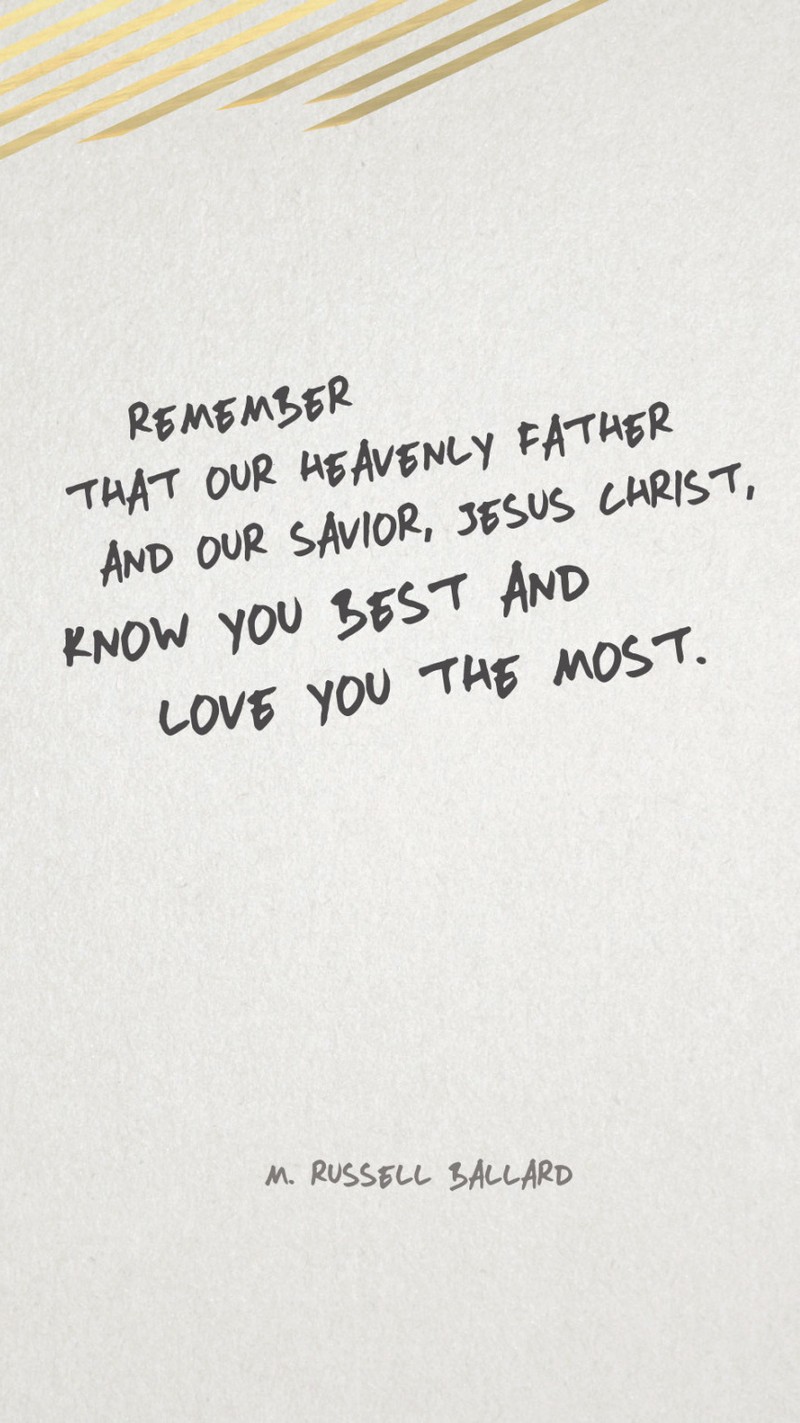 REMEMBER
THAT OUR HEAVENLY FATHER
AND OUR SAVIOR, JESUS CHRIST,
KNOW YOU BEST AND
LOVE YOU THE MOST.
M. RUSSELL BALLARD